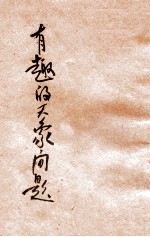 有趣的天象问题